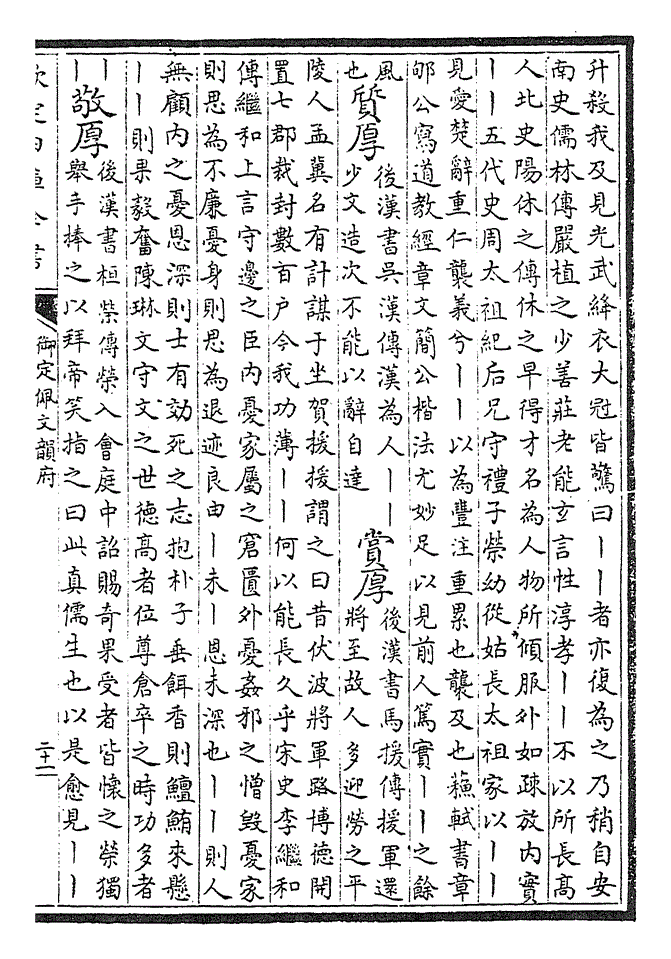 升殺我及見光武絳衣大冠皆驚曰丨丨者亦復為之乃稍自安
南史儒林傳嚴植之少善莊老能玄言性淳孝丨丨不以所長高
人北史陽休之傳休之早得才名為人物所傾服外如疎放內實
丨丨五代史周太祖紀后兄守禮子榮幼從姑長太祖家以丨丨
見愛楚辭重仁襲義兮丨丨以為豐注重累也襲及也蘓軾書章
郇公寫道教經章文簡公楷法尤妙足以見前人篤實丨丨之餘
風也
質厚 後漢書吳漢傳漢為人丨丨少文造次不能以辭自達
賞厚 後漢書馬援傳援軍還將至故人多迎勞之平
陵人孟冀名有計謀于坐賀援援謂之曰昔伏波將軍路博德開
置七郡裁封數百户今我功薄丨丨何以能長久乎宋史李繼和
傳繼和上言守邊之臣內憂家屬之窘匱外憂姦邪之憎毁憂家
則思為不廉憂身則思為退迹良由丨未丨恩未深也丨丨則人
無顧內之憂恩深則士有効死之志抱朴子垂餌香則鱣鮪來懸
丨丨則果毅奮陳琳文守文之世德高者位尊倉卒之時功多者
丨丨
敬厚 後漢書桓榮傳榮入會庭中詔賜奇果受者皆懷之榮獨
舉手捧之以拜帝笑指之曰此真儒生也以是愈見丨丨
欽定四庫全書
御定佩文韻府
二十一